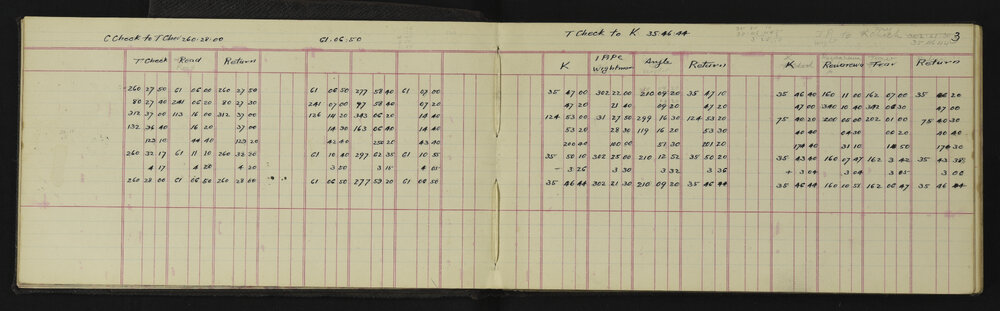 C Check to T Chec 260·28·00 61·06·50 T Check to K 35·46·44 3
T Check Road Return K 1 APPC Wightman Angle Return K Rewarewa Trav Return
260 27 50 61 06 00 260 27 50 61 06 50 277 58 40 61 07 00 35 47 00 302 22 00 210 09 20 35 47 10 35 46 40 160 11 00 162 07 00 35 46 20
80 27 40 241 06 20 80 27 30 241 07 00 97 58 40 07 20 47 20 21 40 09 20 47 20 47 00 340 10 40 342 06 30 47 00
312 37 00 113 16 00 312 37 00 126 14 20 343 06 20 14 40 124 53 00 31 27 50 299 16 30 124 53 20 75 40 20 200 05 00 202 01 00 75 40 30
132 36 40 16 20 37 00 14 30 163 06 40 14 40 53 20 28 30 119 16 20 53 30 40 40 04 30 00 20 40 40
123 10 44 40 129 20 42 40 250 20 43 40 200 40 100 00 51 30 201 20 174 40 31 10 14 50 174 30
260 32 17 61 11 10 260 32 20 61 10 40 297 62 35 61 10 55 35 50 10 302 25 00 210 12 52 35 50 20 35 43 40 160 07 47 162 3 42 35 43 38
4 17 4 20 4 20 3 50 3 15 4 05 - 3 26 3 30 3 32 3 36 + 3 04 3 04 3 05 3 00
260 28 00 61 06 50 260 28 00 61 06 50 277 59 20 61 06 50 35 46 44 302 21 30 210 09 20 35 46 44 35 46 44 160 10 51 162 06 47 35 46 44